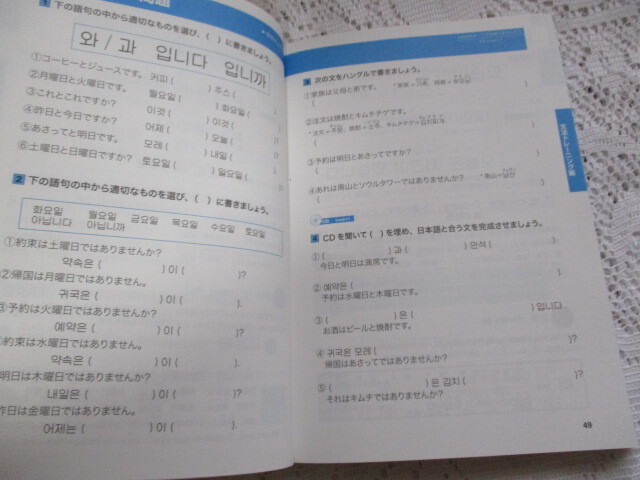 問題
1 下の語句の中から適切なものを選び、( )に書きましょう。
와 / 과 입니다 입니까
①コーヒーとジュースです。 커피 ( ) 주스 (
②月曜日と火曜日です。 월요일 ( ) 화요일 (
③これとこれですか? 이것 ( ) 이것 (
④昨日と今日ですか? 어제 ( ) 오늘 (
⑤あさってと明日です。 모레 ( ) 내일 (
⑥土曜日と日曜日ですか? 토요일 ( ) 일요일 (
2 下の語句の中から適切なものを選び、( )に書きましょう。
화요일 월요일 금요일 목요일 수요일 토요일
아닙니다 아닙니까
①約束は土曜日ではありませんか?
약속은 ( )이 ( )?
②帰国は月曜日ではありません。
귀국은 ( )이 ( ).
③予約は火曜日ではありませんか?
예약은 ( )이 ( )?
約束は水曜日ではありません。
약속은 ( )이 ( ).
明日は木曜日ではありませんか?
내일은 ( )이 ( )?
昨日は金曜日ではありません。
어제는 ( )이 ( ).
3 次の文をハングルで書きましょう。
①家族は父母と弟です。
(
②注文は焼酎とキムチチゲです。
(
③予約は明日とあさってですか?
(
④あれは南山とソウルタワーではありませんか?
(
4 CDを聞いて( )を埋め、日本語と合う文を完成させましょう。
① ( ) 과 ( ) 만석 (
今日と明日は満席です。
② 예약은 (
予約は水曜日と木曜日です。
③ ( ) 은 ( ) 입니다
お酒はビールと焼酎です。
④ 귀국은 모레 (
帰国はあさってではありませんか?
⑤ ( ) 은 김치 (
それはキムチではありませんか?
文法トレーニング編
49